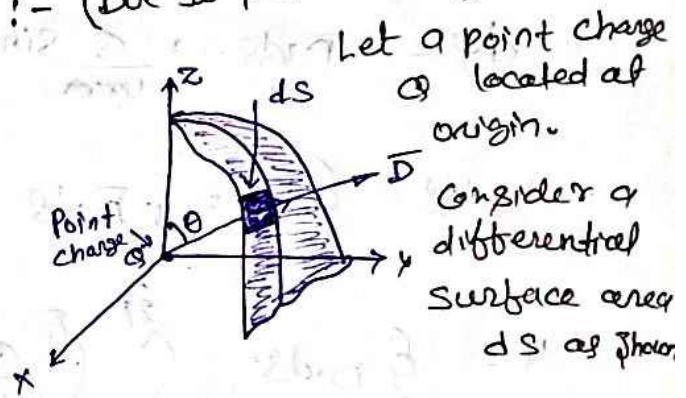 ! - (Due to
Let a point charge
Q located at
origin.
Z
dS
D̅
Consider a
differential
Surface area
dS as shown
Point
charge Q
θ
y
x